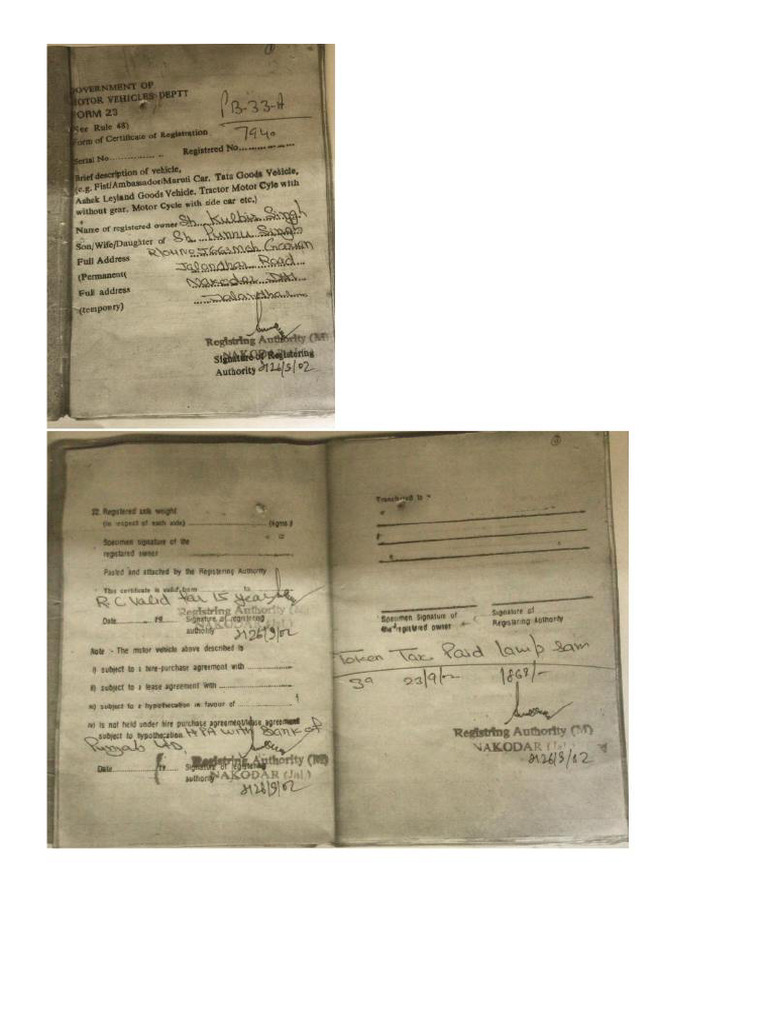 GOVERNMENT OF
MOTOR VEHICLES DEPTT
FORM 23
(See Rule 48)
Form of Certificate of Registration
PB-33-A
7940
Serial No............... Registered No...............
Brief description of vehicle,
(e.g. Fist/Ambamador/Maruti Car, Tats Goods Vehicle,
Ashek Leyland Goods Vehicle, Tractor Motor Cyle with
without gear, Motor Cycle with side car etc,)
Name of registered owner Sh. Kulbir Singh
Son/Wife/Daughter of Sh. Punnu Singh
Full Address
(Permanent( Jalandhar Road
Full address Nakodar Dist
(temponry) Jalandhar
Registring Authority (M)
NAKODAR
Signature of Registering
Authority 26/9/02
22 Registered axle weight
(in respect of each axle) ............... (kgms)
Specimen signature of the
registered owner ...............
Pasted and attached by the Registering Authority
This certificate is valid from to
R.C Valid for 15 year
Registring Authority (M)
NAKODAR (Jal.)
Date Signature of registering
authority 26/9/02
Note :- The motor vehicle above described is
i) subject to a hire-purchase agreement with ...............
ii) subject to a lease agreement with ...............
iii) subject to a hypothecation in favour of ...............
iv) is not held under hire purchase agreement/lease agreement
subject to hypothecation HPA with Bank of
Punjab Ltd.
Registring Authority (M)
NAKODAR (Jal.)
Date Signature of registering
authority
26/9/02
Transferred to
Specimen Signature of
the registered owner
Signature of
Registering Authority
Token Tax Paid lamp sam
39 23/9/02 1868/-
Registring Authority (M)
NAKODAR (Jal.)
26/9/02